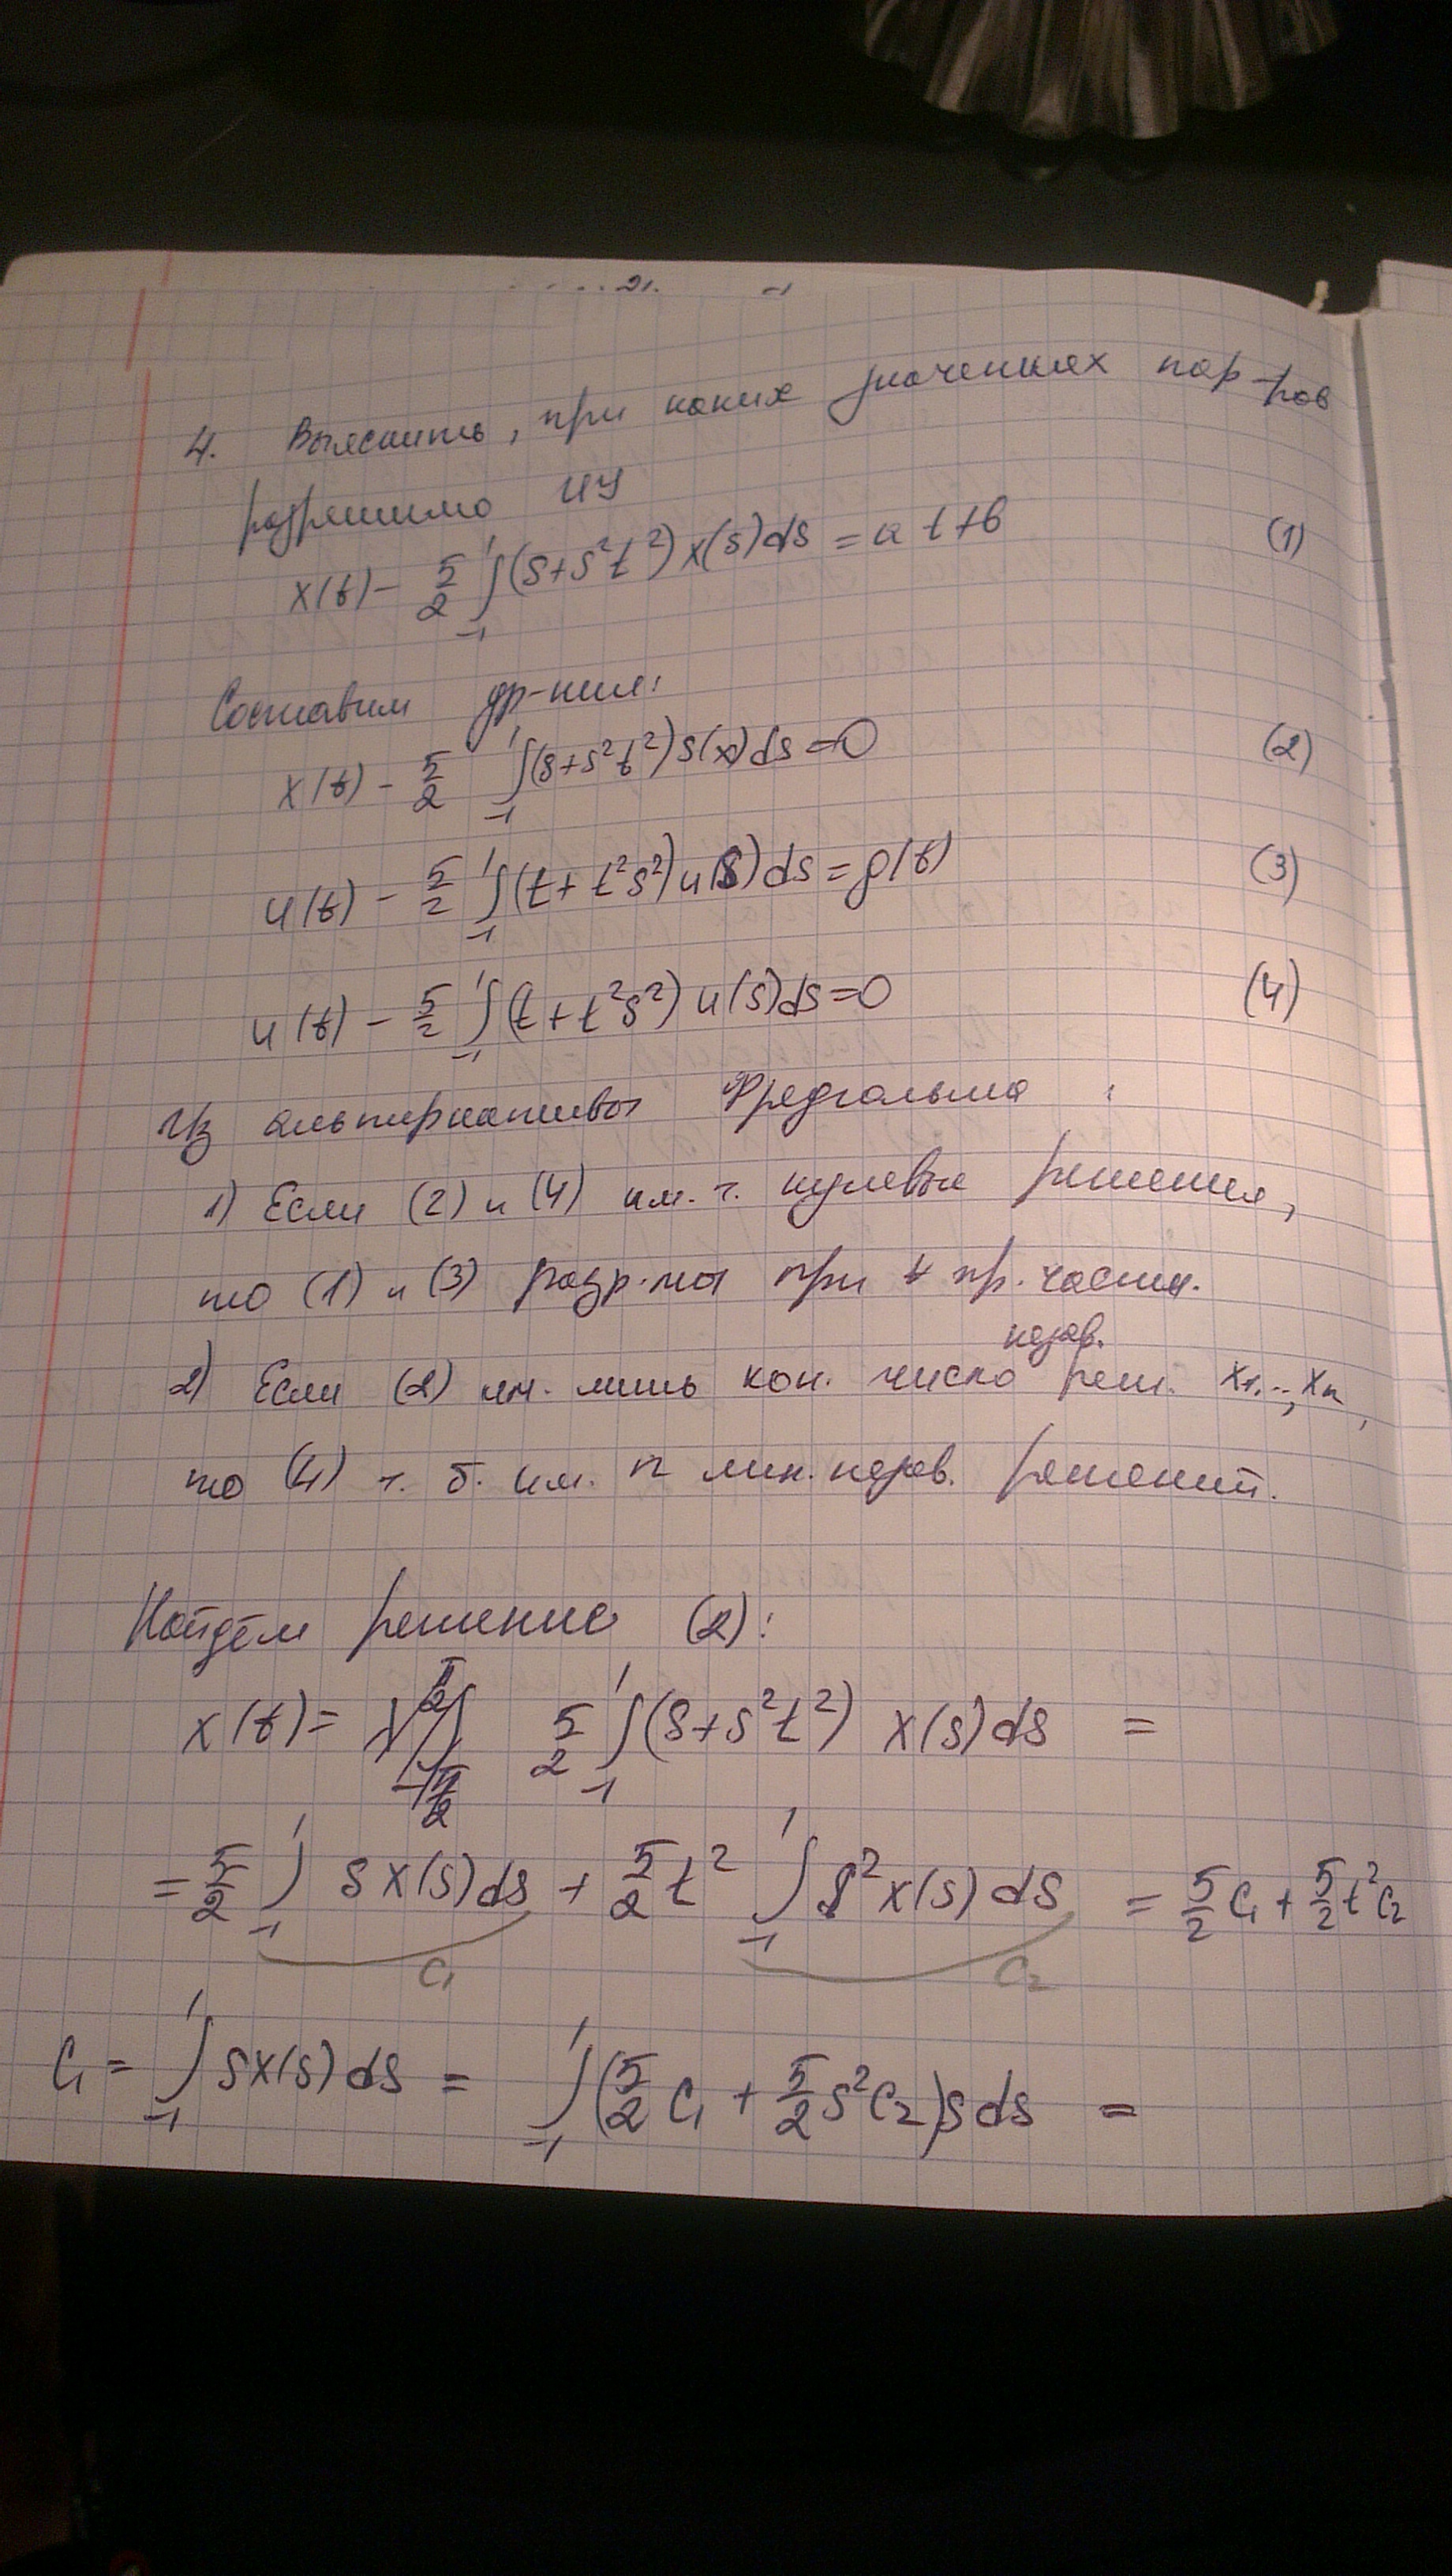 4. Выяснить, при каких значениях пар-ров
разрешимо ИУ
x(t) - 5/2 ∫_{-1}^{1} (s+s²t²) x(s)ds = at+b (1)
Составим ур-ния:
x(t) - 5/2 ∫_{-1}^{1} (s+s²t²) s(x)ds = 0 (2)
u(t) - 5/2 ∫_{-1}^{1} (t+t²s²) u(s)ds = g(t) (3)
u(t) - 5/2 ∫_{-1}^{1} (t+t²s²) u(s)ds = 0 (4)
Из альтернативы Фредгольма :
1) Если (2) и (4) им. т. нулевые решения,
то (1) и (3) разр-мы при ∀ пр. частях.
незав.
2) Если (2) им. лишь кон. число реш. x₁,..,xₙ,
то (4) т. б. им. n лин. незав. решений.
Найдём решение (2):
x(t) = 5/2 ∫_{-1}^{1} (s+s²t²) x(s)ds =
= 5/2 ∫_{-1}^{1} sx(s)ds + 5/2 t² ∫_{-1}^{1} s²x(s)ds = 5/2 C₁ + 5/2 t²C₂
C₁ C₂
C₁ = ∫_{-1}^{1} sx(s)ds = ∫_{-1}^{1} (5/2 C₁ + 5/2 s²C₂)sds =